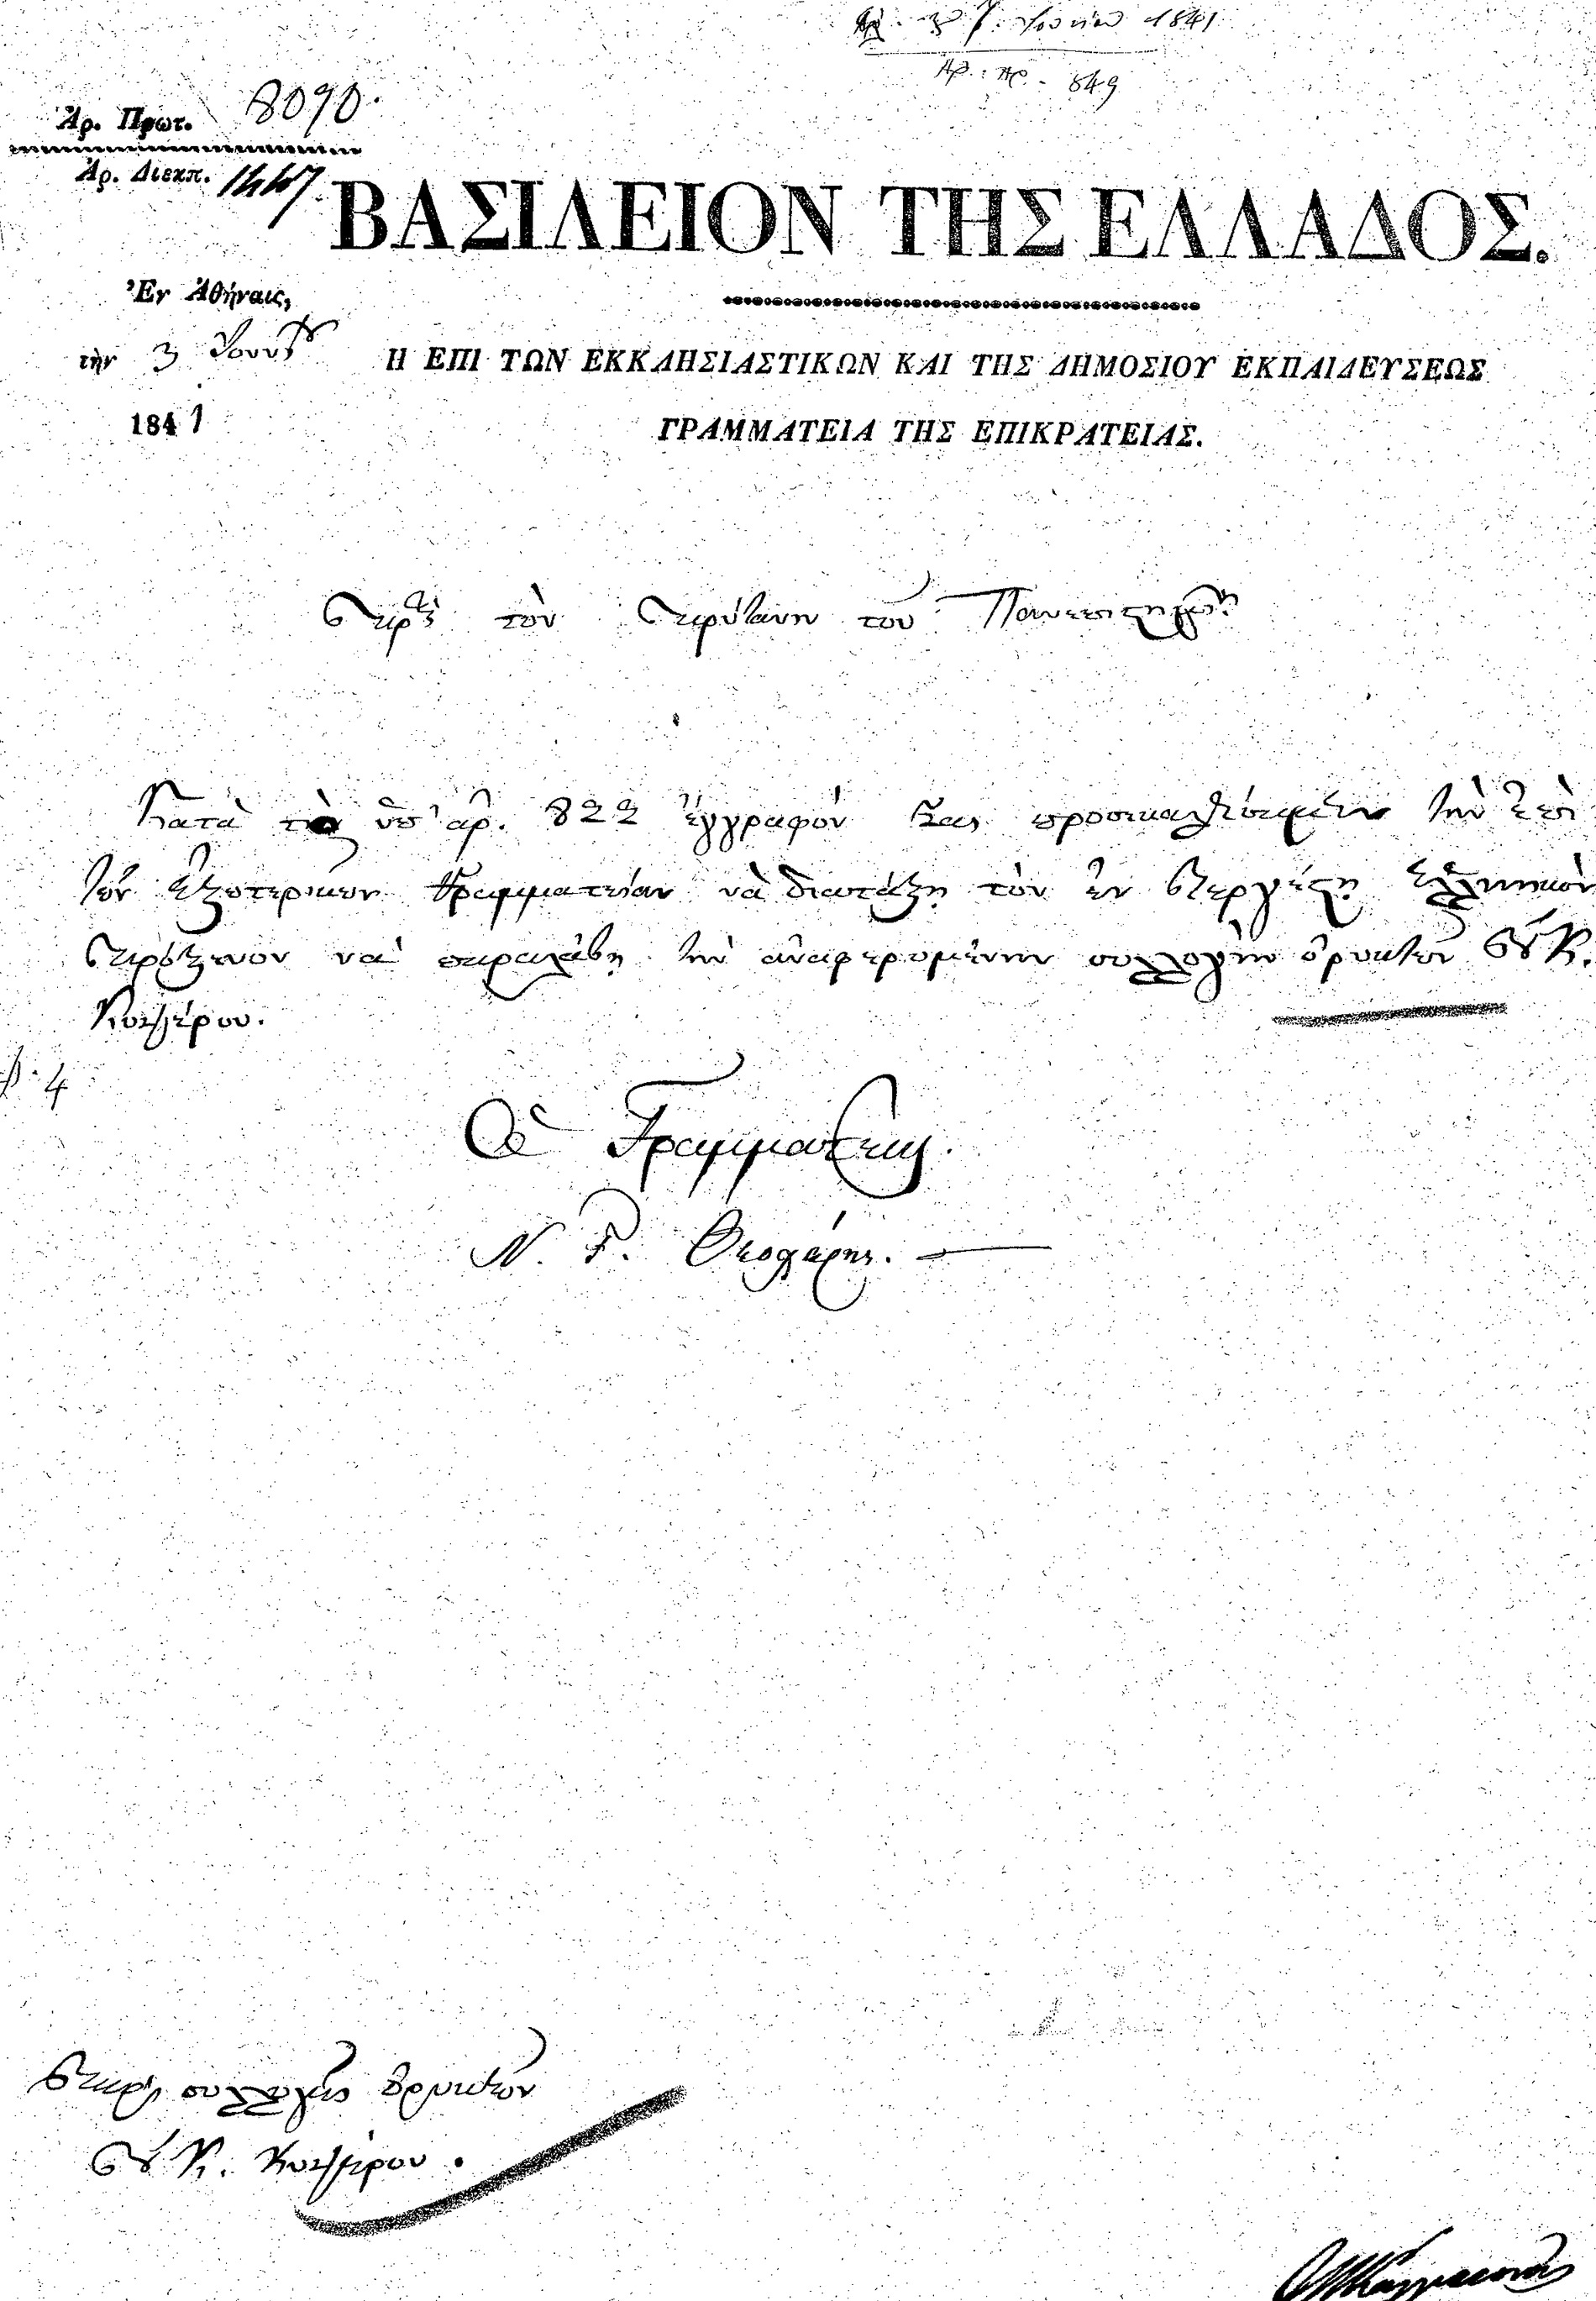 7 Ἰουνίου 1841
Ἀρ. Πρ. 849
Ἀρ. Πρωτ. 8090.
Ἀρ. Διεκπ.
ΒΑΣΙΛΕΙΟΝ ΤΗΣ ΕΛΛΑΔΟΣ.
Ἐν Ἀθήναις,
τὴν 3 Ἰουνίου
1841
Η ΕΠΙ ΤΩΝ ΕΚΚΛΗΣΙΑΣΤΙΚΩΝ ΚΑΙ ΤΗΣ ΔΗΜΟΣΙΟΥ ΕΚΠΑΙΔΕΥΣΕΩΣ
ΓΡΑΜΜΑΤΕΙΑ ΤΗΣ ΕΠΙΚΡΑΤΕΙΑΣ.
Πρὸς τὸν Πρύτανη τοῦ Πανεπιστημίου
Κατὰ τὸ ὑπ' ἀρ. 822 ἔγγραφόν σας προσεκαλέσαμεν τὴν ἐπὶ
τῶν Ἐξωτερικῶν Γραμματείαν νὰ διατάξῃ τὸν ἐν Τεργέστῃ Ἑλληνικὸν
Πρόξενον νὰ παραλάβῃ τὴν ἀναφερομένην συλλογὴν ὀρυκτῶν τοῦ Κ.
4
Ὁ Γραμματεὺς.
Ν. Γ. Θεοχάρης.
Περὶ συλλογῆς ὀρυκτῶν
τοῦ Κ.